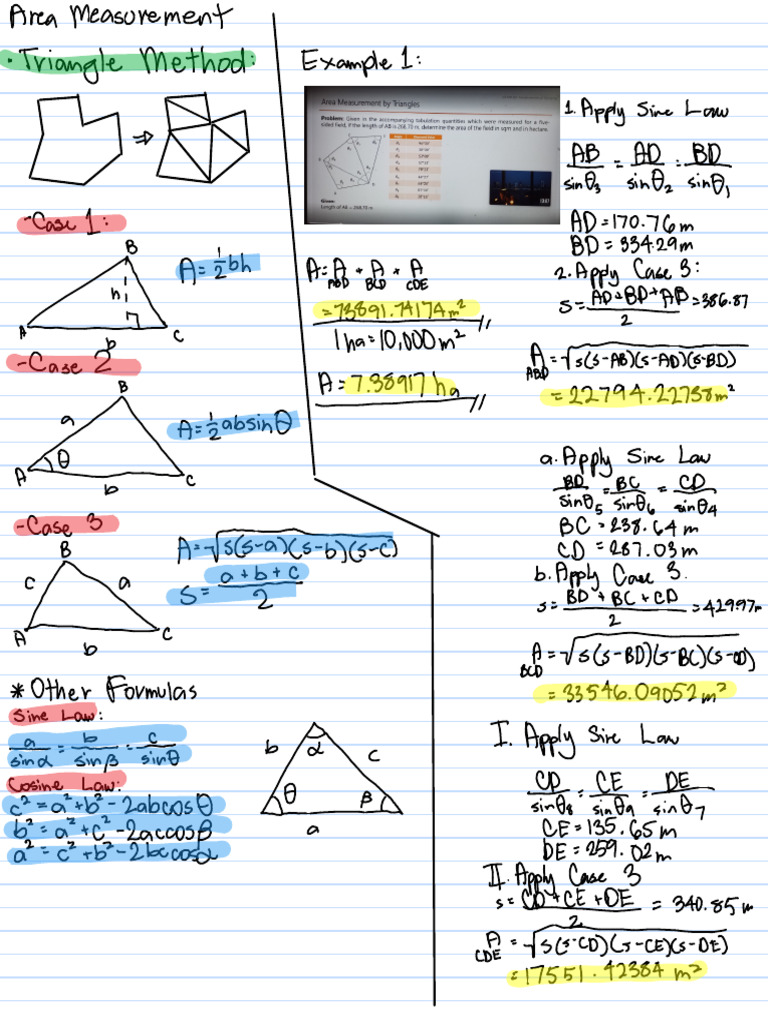 Area Measurement
• Triangle Method:
-Case 1:
B
h
A
b
C
A = 1/2 bh
-Case 2
B
a
A
θ
b
C
A = 1/2 ab sin θ
-Case 3
B
c
a
A
b
C
A = √s(s-a)(s-b)(s-c)
s = a + b + c / 2
* Other Formulas
Sine Law:
a/sin α = b/sin β = c/sin θ
Cosine Law:
c² = a² + b² - 2ab cos θ
b² = a² + c² - 2ac cos β
a² = c² + b² - 2bc cos α
b
α
c
θ
β
a
Example 1:
Area Measurement by Triangles
Problem: Given in the accompanying tabulation quantities which were measured for a five-
sided field. If the length of AB is 268.73 m, determine the area of the field in sqm and in hectare.
Given:
Length of AB = 268.73 m
A = A ABD + A BCD + A CDE
= 73891.74174 m²
1 ha = 10,000 m²
A = 7.38917 ha
1. Apply Sine Law
AB/sin θ3 = AD/sin θ2 = BD/sin θ1
AD = 170.76 m
BD = 334.29 m
2. Apply Case 3:
s = AD + BD + AB / 2 = 386.87
A ABD = √s(s-AB)(s-AD)(s-BD)
= 22794.22738 m²
a. Apply Sine Law
BD/sin θ5 = BC/sin θ6 = CD/sin θ4
BC = 238.64 m
CD = 287.03 m
b. Apply Case 3.
s = BD + BC + CD / 2 = 429.97 m
A BCD = √s(s-BD)(s-BC)(s-CD)
= 33546.09052 m²
I. Apply Sine Law
CD/sin θ8 = CE/sin θ9 = DE/sin θ7
CE = 135.65 m
DE = 259.02 m
II. Apply Case 3
s = CD + CE + DE / 2 = 340.85 m
A CDE = √s(s-CD)(s-CE)(s-DE)
= 17551.42384 m²